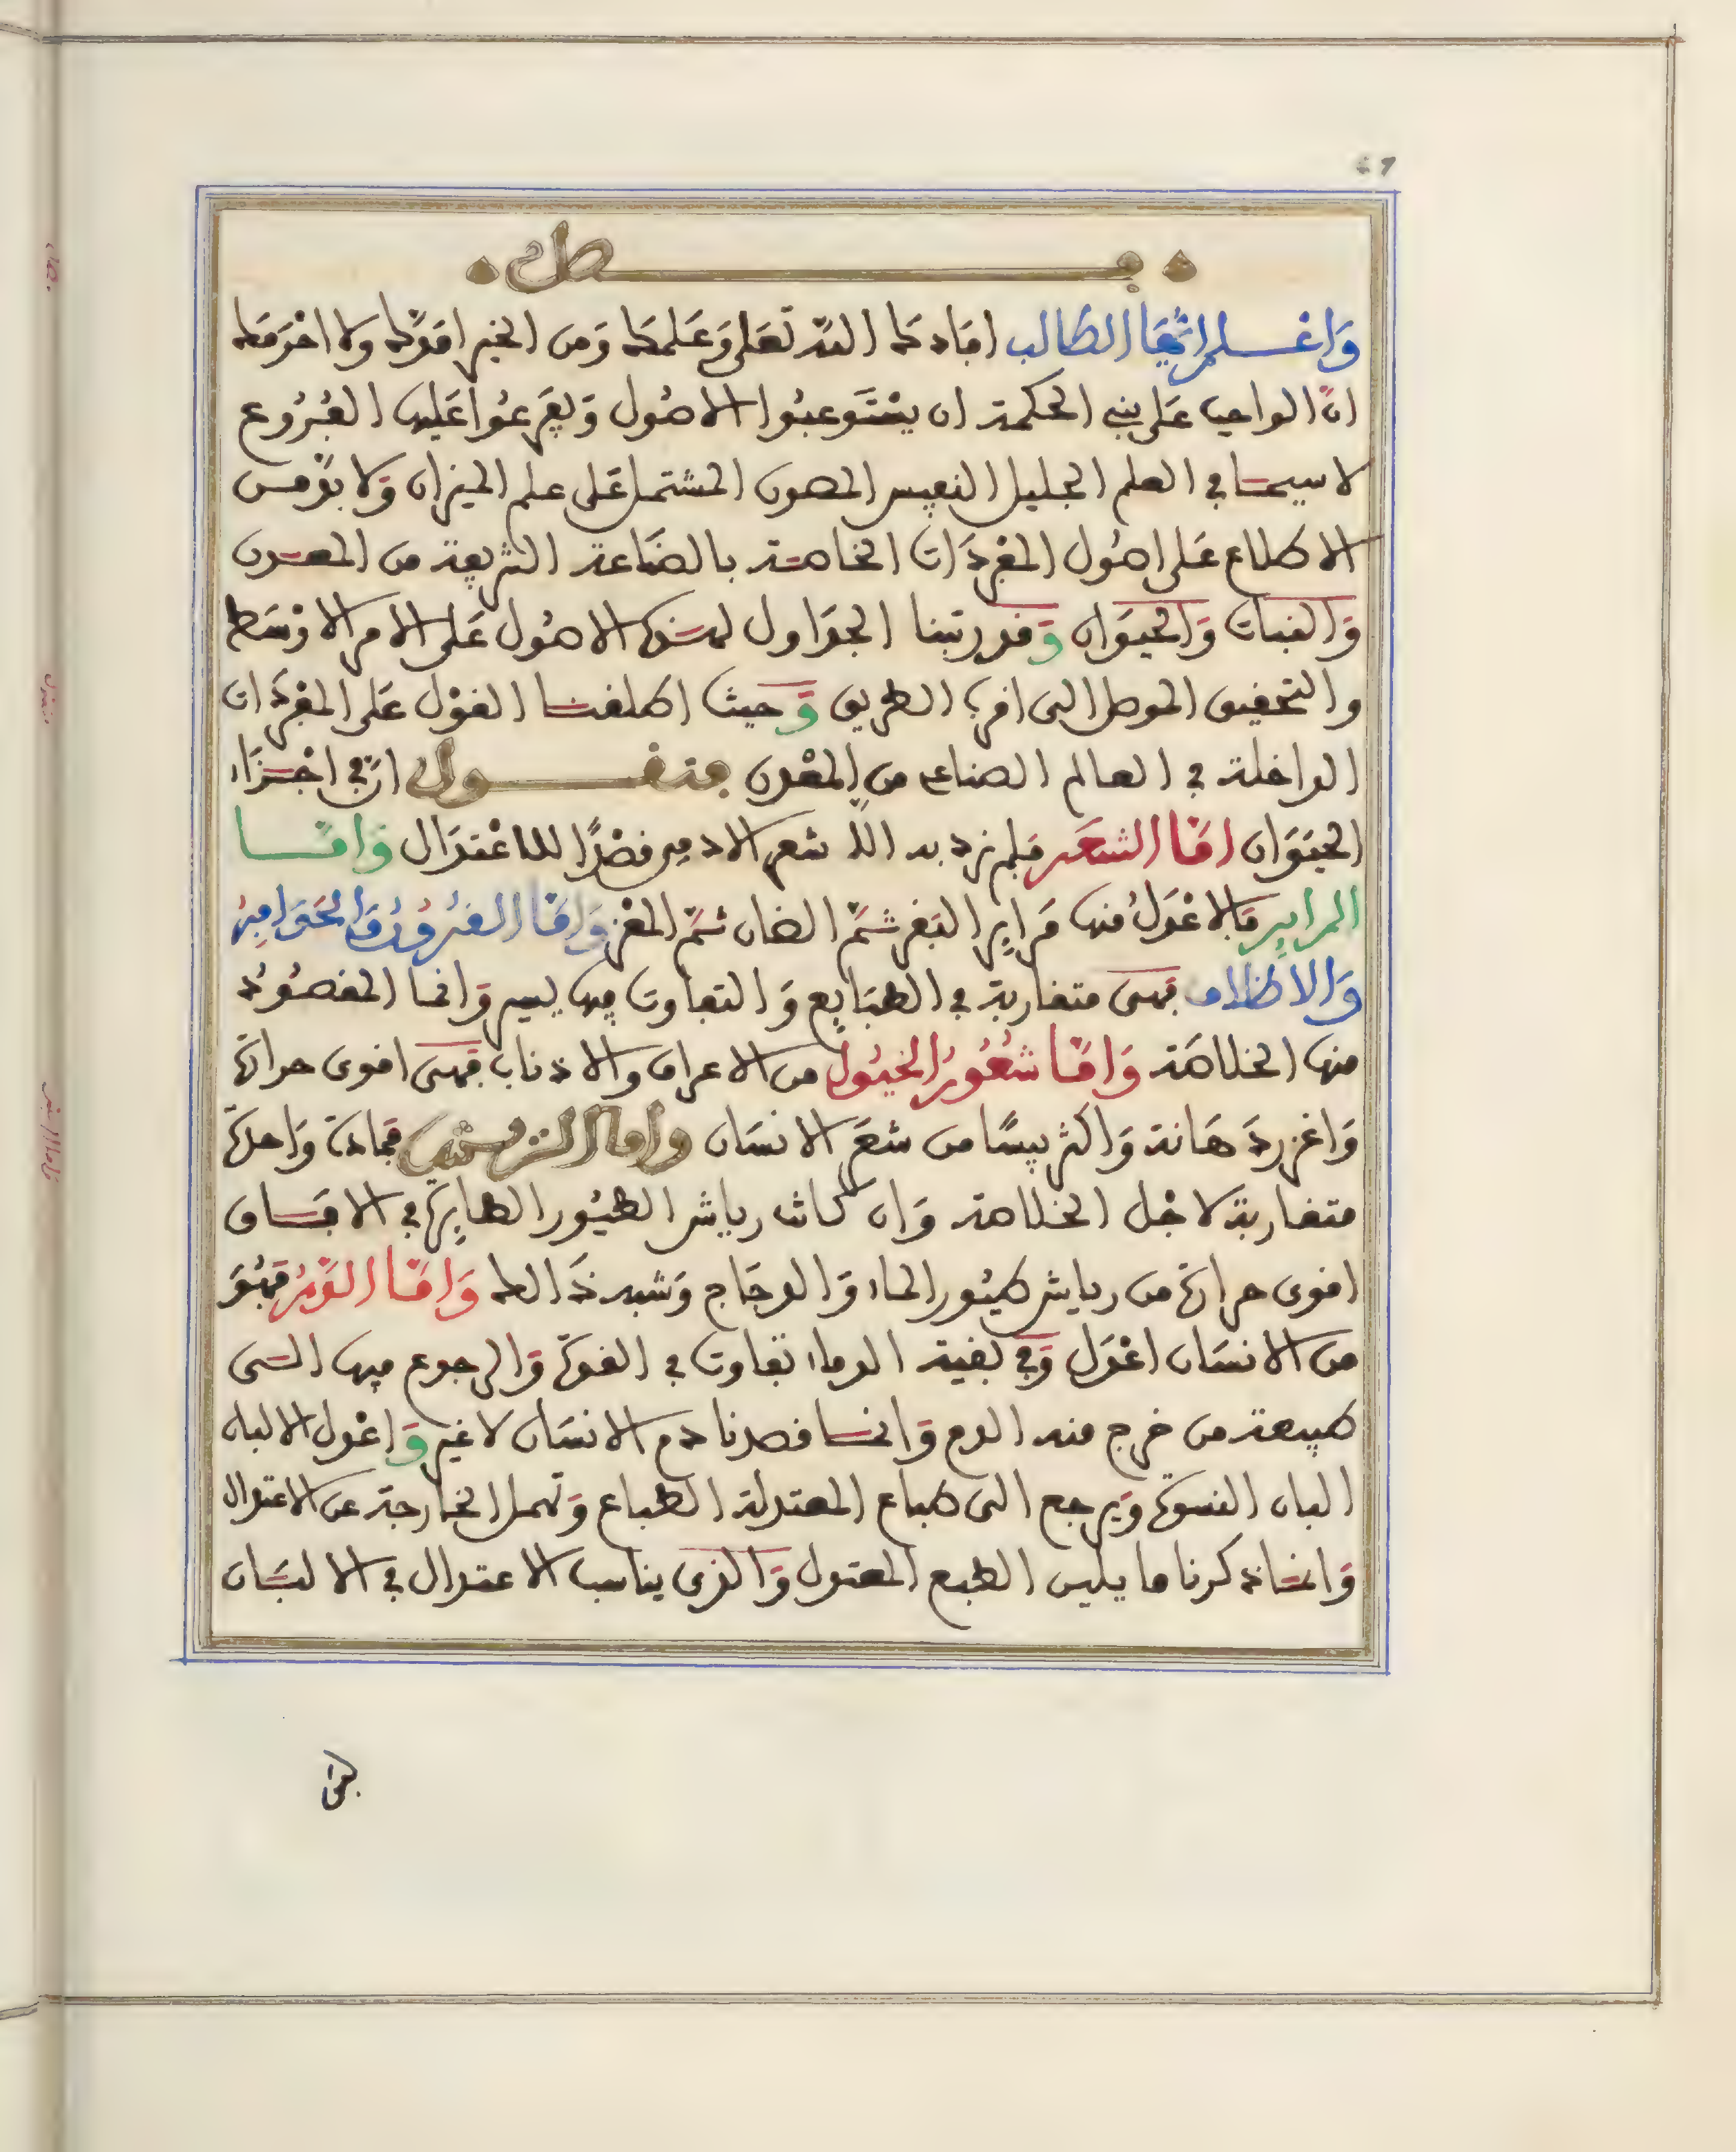 فصل
وَاعْلم ايُّهَا الطالب افادك اللّه تعَلى وَعَلمك وَمن الخير امَدّك ولا احْرَمَك
انّ الواجب عَلى بني الحكمة ان يسْتَوعبُوا الاصُول وَيفَرعُوا عَليها الفُرُوع
لا سيما في العلم الجليل النفيس المصون المشتمل عَلى علم الميزان وَلا بدّ من
الاطلاع عَلى اصُول المفْردَات الخاصة بالصّناعة الشريفة من المعدن
وَالنبات وَالحيوَان وَقد رتبنا الجدَاول لهذه الاصُول عَلى الامر الاوْسَط
والتحقيق الموصل الى اقرب الطريق وَحيث اطلقنا القوْل عَلى المفردَات
الداخلة في العالم الصناعي من المعْدن فنقول ان في اجْزَاء
الحيَوَان امّا الشعَر فلم نرد به الاّ شعر الادمي قصْدًا للاعْتدَال وَامّا
المراير فالاعْدَل منها مَراير البَقر ثمّ الضان ثمّ المعْز وَامّا القرُونُ وَالحَوَافِرُ
وَالاظلاف فهى متقاربة في الطبَايع وَالتفاوت فيها يسير وَانما المقصُودُ
منها الخلاصَة وَامّا شعُورُ الخيُول من الاعراف والاذناب فهى اقوى حرارة
وَاغزر دَهَانة وَاكثر يبسًا من شعَر الانسَان واما الريش فمادة وَاحدة
متقاربة لاجْل الخلاصة وَان كانت رياش الطيُور الطايرة في الافاق
اقوى حرارة من رياش طيُور الماء وَالدجَاج وَشبه ذَالك وَامّا الدّمُ فهُوَ
من الانسَان اعْدَل وَفي بقية الدماء تفاوت في القوة وَالرجوع فيها الى
طبيعة من خرج منه الدم وَانما قصدنا دم الانسَان لا غير وَاعْدل الالبان
البان النسوة وَيرجع الى طباع المعتدلة الطباع وَتهمل الخارجة عن الاعتدال
وَانما ذكرنا ما يليين الطبع المعتدل وَالذى يناسب الاعتدال في الالبَان